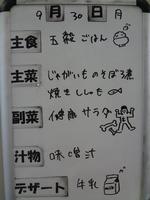 9月30日 月
主食 五穀ごはん
主菜 じゃがいものそぼろ煮
焼きししゃも
副菜 健康サラダ
汁物 味噌汁
デザート 牛乳